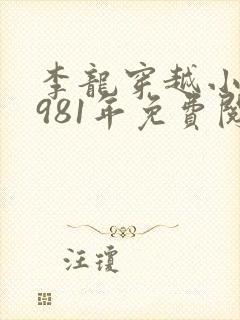 李龍穿越小
981年免費閱
汪瓊